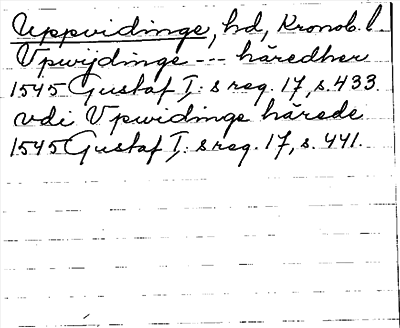 Uppvidinge, hd, Kronob. l.
Vpwijdinge --- häredher
1545 Gustaf I: s reg. 17, s. 433.
vdi Vpwidinge härede
1545 Gustaf I: s reg. 17, s. 441.